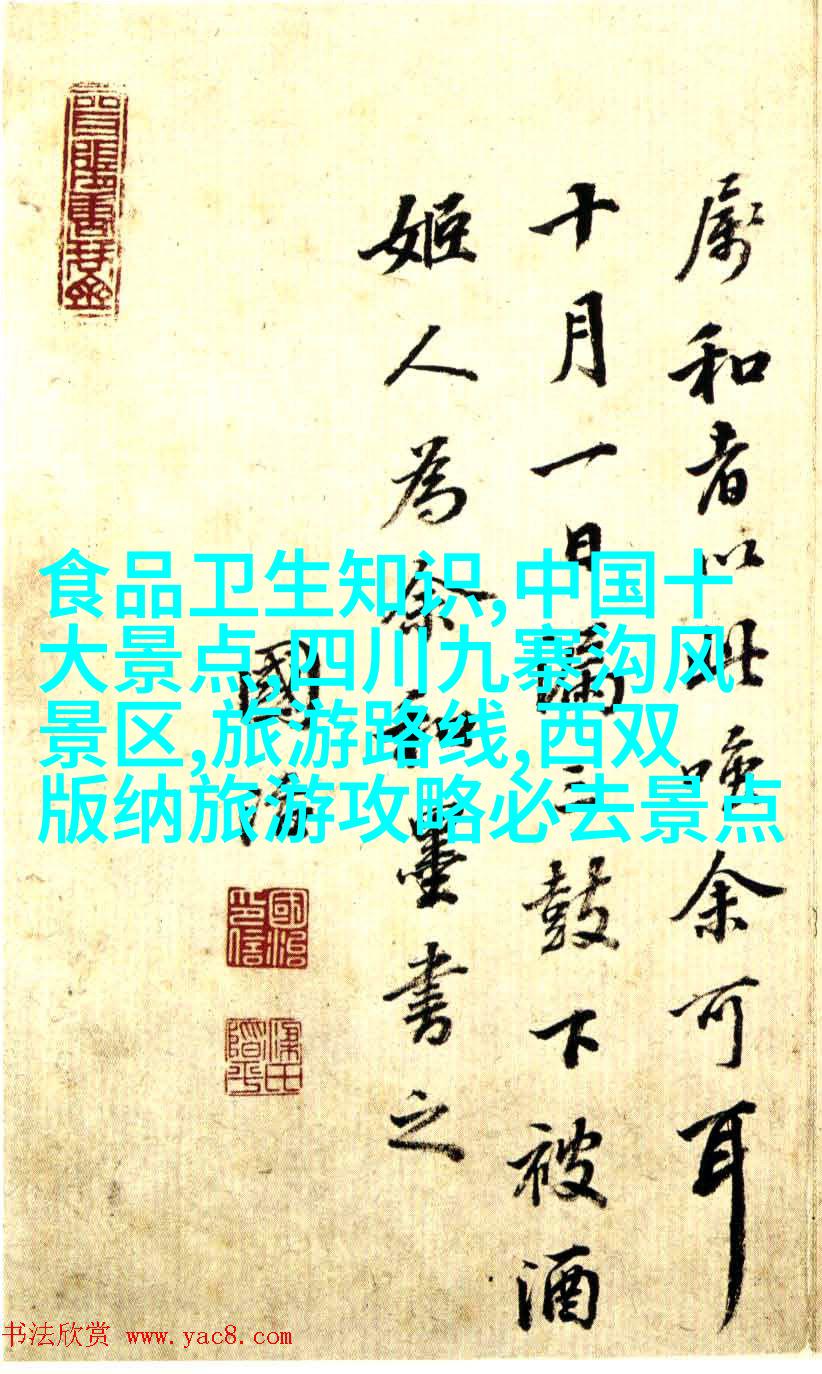 属和者以此唤余可耳
十月一日醉三鼓下被酒
姬人为余和墨书之
國治
國治
印信
食品卫生知识,中国十
大景点,四川九寨沟风
景区,旅游路线,西双
版纳旅游攻略必去景点
书法欣赏 www.yac8.com